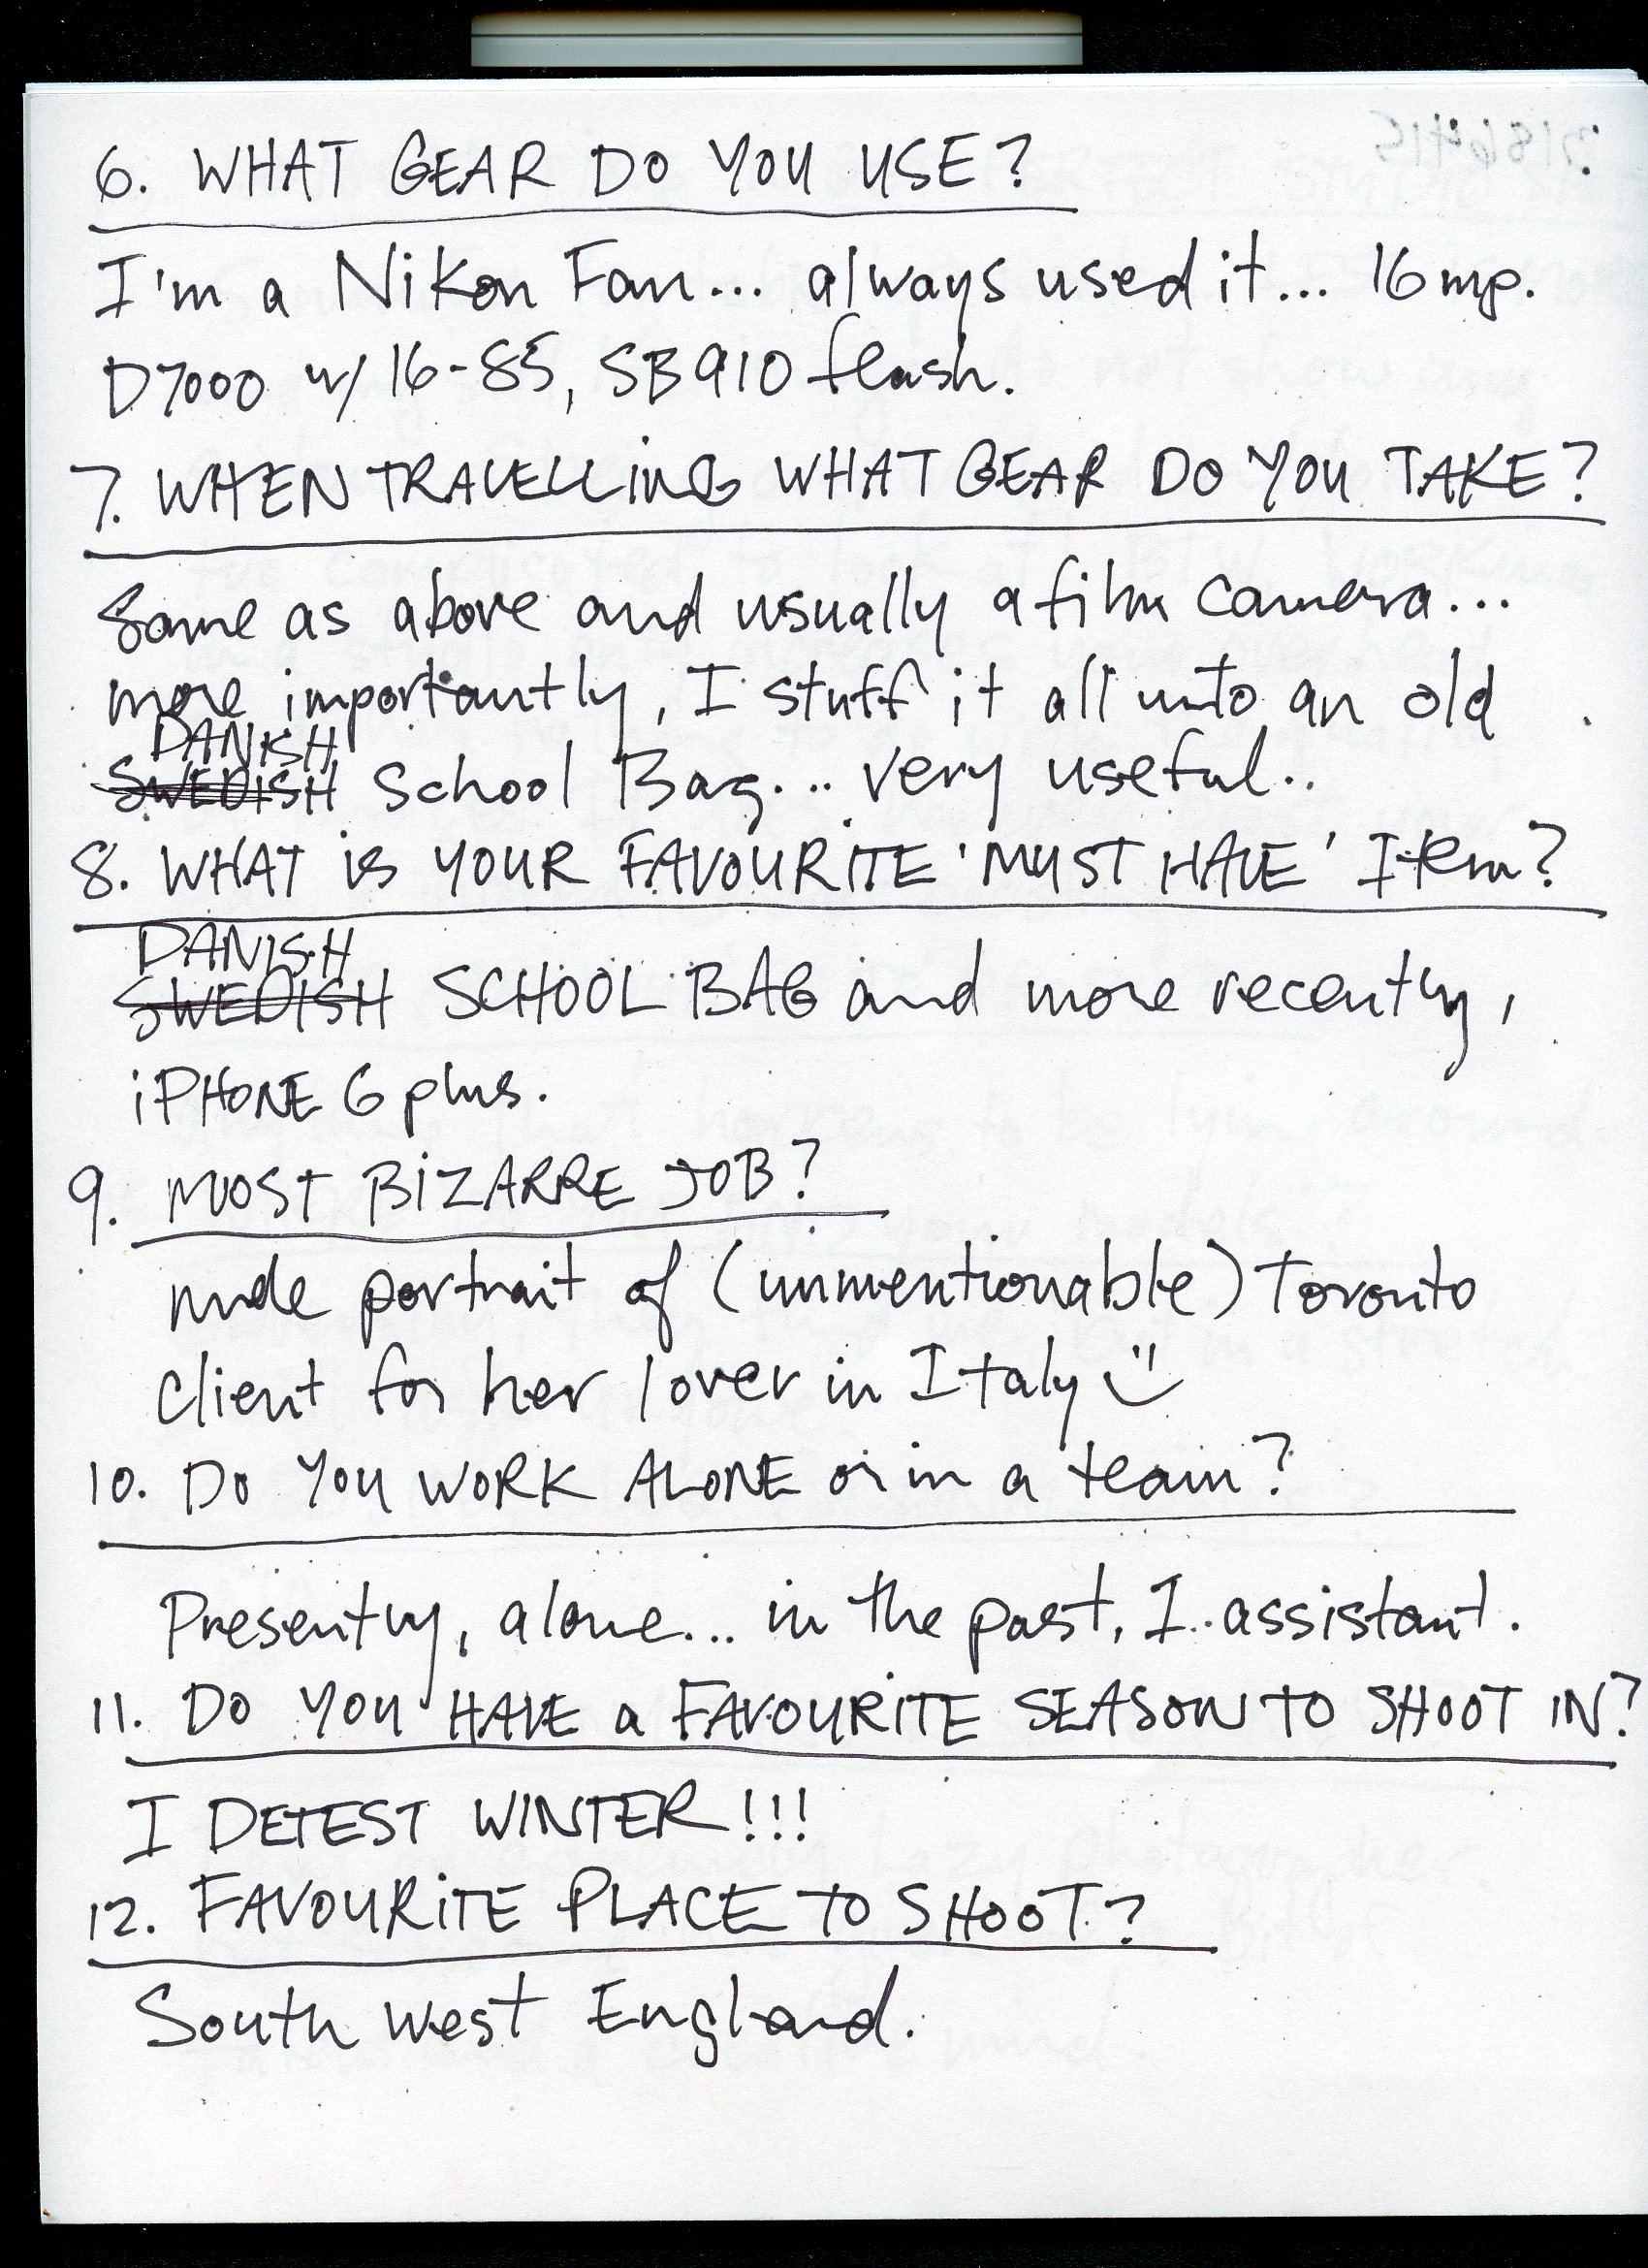 6. WHAT GEAR DO YOU USE?
I'm a Nikon Fan... always used it... 16mp.
D7000 w/ 16-85, SB910 flash.
7. WHEN TRAVELLING WHAT GEAR DO YOU TAKE?
Same as above and usually a film camera...
more importantly, I stuff it all unto an old
DANISH
SWEDISH School Bag... very useful..
8. WHAT is YOUR FAVOURITE 'MUST HAVE' ITEm?
DANISH
SWEDISH SCHOOL BAG and more recently,
iPHONE 6 plus.
9. MOST BIZARRE JOB?
nude portrait of (unmentionable) Toronto
client for her lover in Italy
10. DO YOU WORK ALONE or in a team?
Presently, alone... in the past, 1 assistant.
11. DO YOU HAVE a FAVOURITE SEASON TO SHOOT IN?
I DETEST WINTER!!!
12. FAVOURITE PLACE TO SHOOT?
South West England.